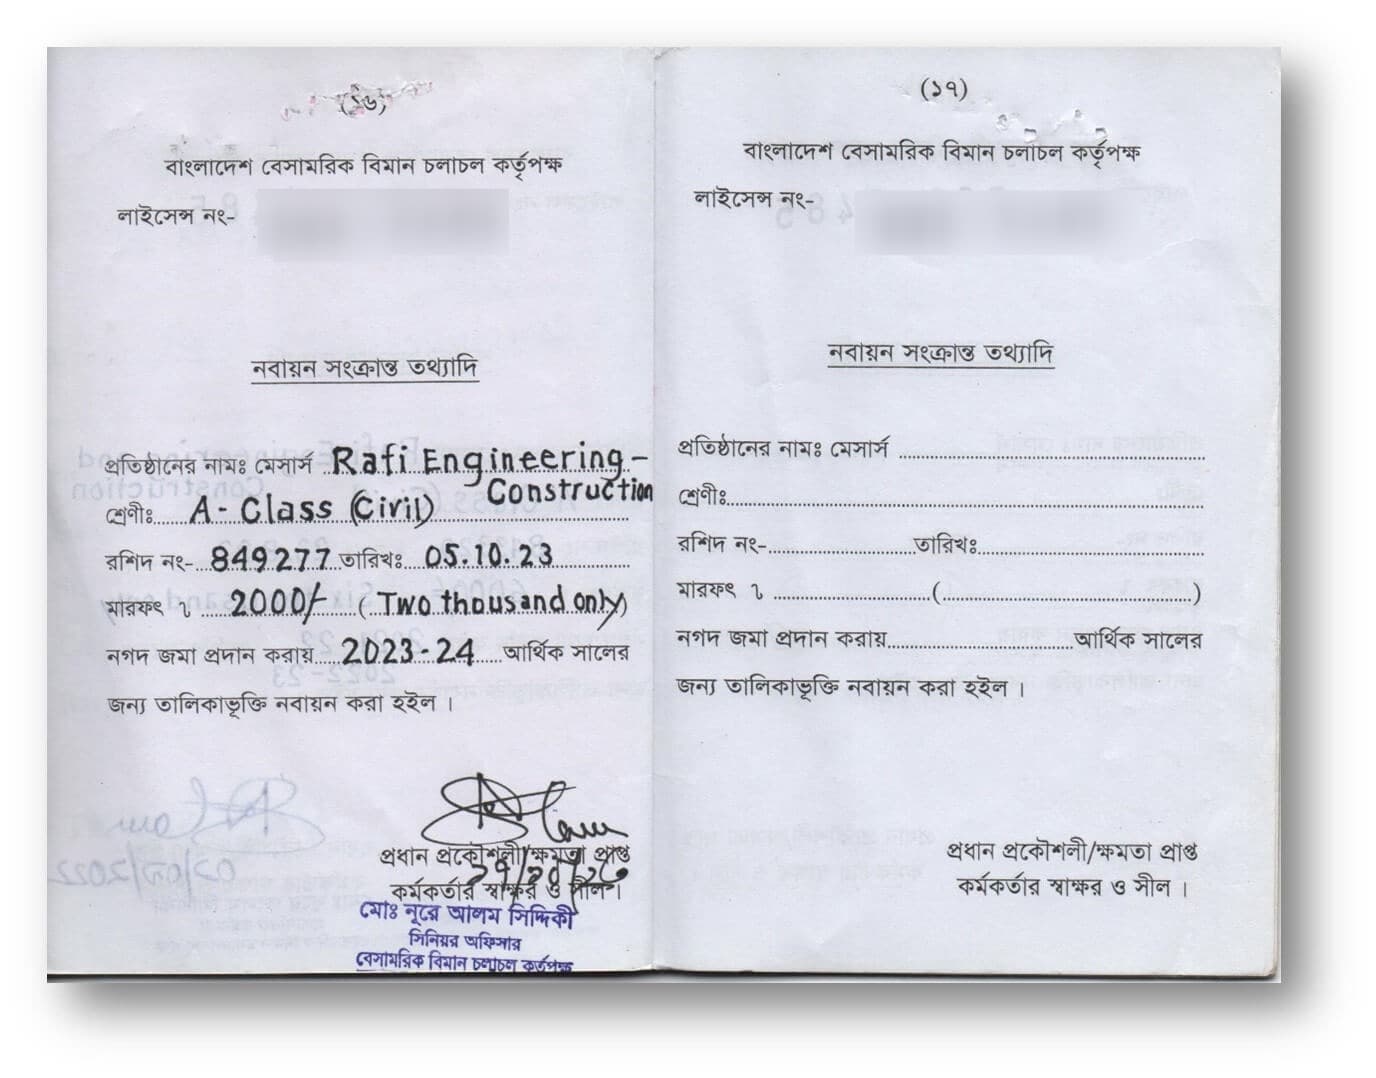 (১৬)
বাংলাদেশ বেসামরিক বিমান চলাচল কর্তৃপক্ষ
লাইসেন্স নং-
নবায়ন সংক্রান্ত তথ্যাদি
প্রতিষ্ঠানের নামঃ মেসার্স Rafi Engineering-
Construction
শ্রেণীঃ...... A- Class (Civil)
রশিদ নং- 849277 তারিখঃ 05.10.23
মারফৎ ৲ 2000/- ( Two thousand only)
নগদ জমা প্রদান করায় 2023-24 আর্থিক সালের
জন্য তালিকাভূক্তি নবায়ন করা হইল ।
প্রধান প্রকৌশলী/ক্ষমতা প্রাপ্ত
কর্মকর্তার স্বাক্ষর ও সীল ।
মোঃ নূরে আলম সিদ্দিকী
সিনিয়র অফিসার
বেসামরিক বিমান চলাচল কর্তৃপক্ষ
(১৭)
বাংলাদেশ বেসামরিক বিমান চলাচল কর্তৃপক্ষ
লাইসেন্স নং-
নবায়ন সংক্রান্ত তথ্যাদি
প্রতিষ্ঠানের নামঃ মেসার্স ..............................
শ্রেণীঃ..............................
রশিদ নং-.................... তারিখঃ..............................
মারফৎ ৲ ....................(..............................)
নগদ জমা প্রদান করায়.............................. আর্থিক সালের
জন্য তালিকাভূক্তি নবায়ন করা হইল ।
প্রধান প্রকৌশলী/ক্ষমতা প্রাপ্ত
কর্মকর্তার স্বাক্ষর ও সীল ।